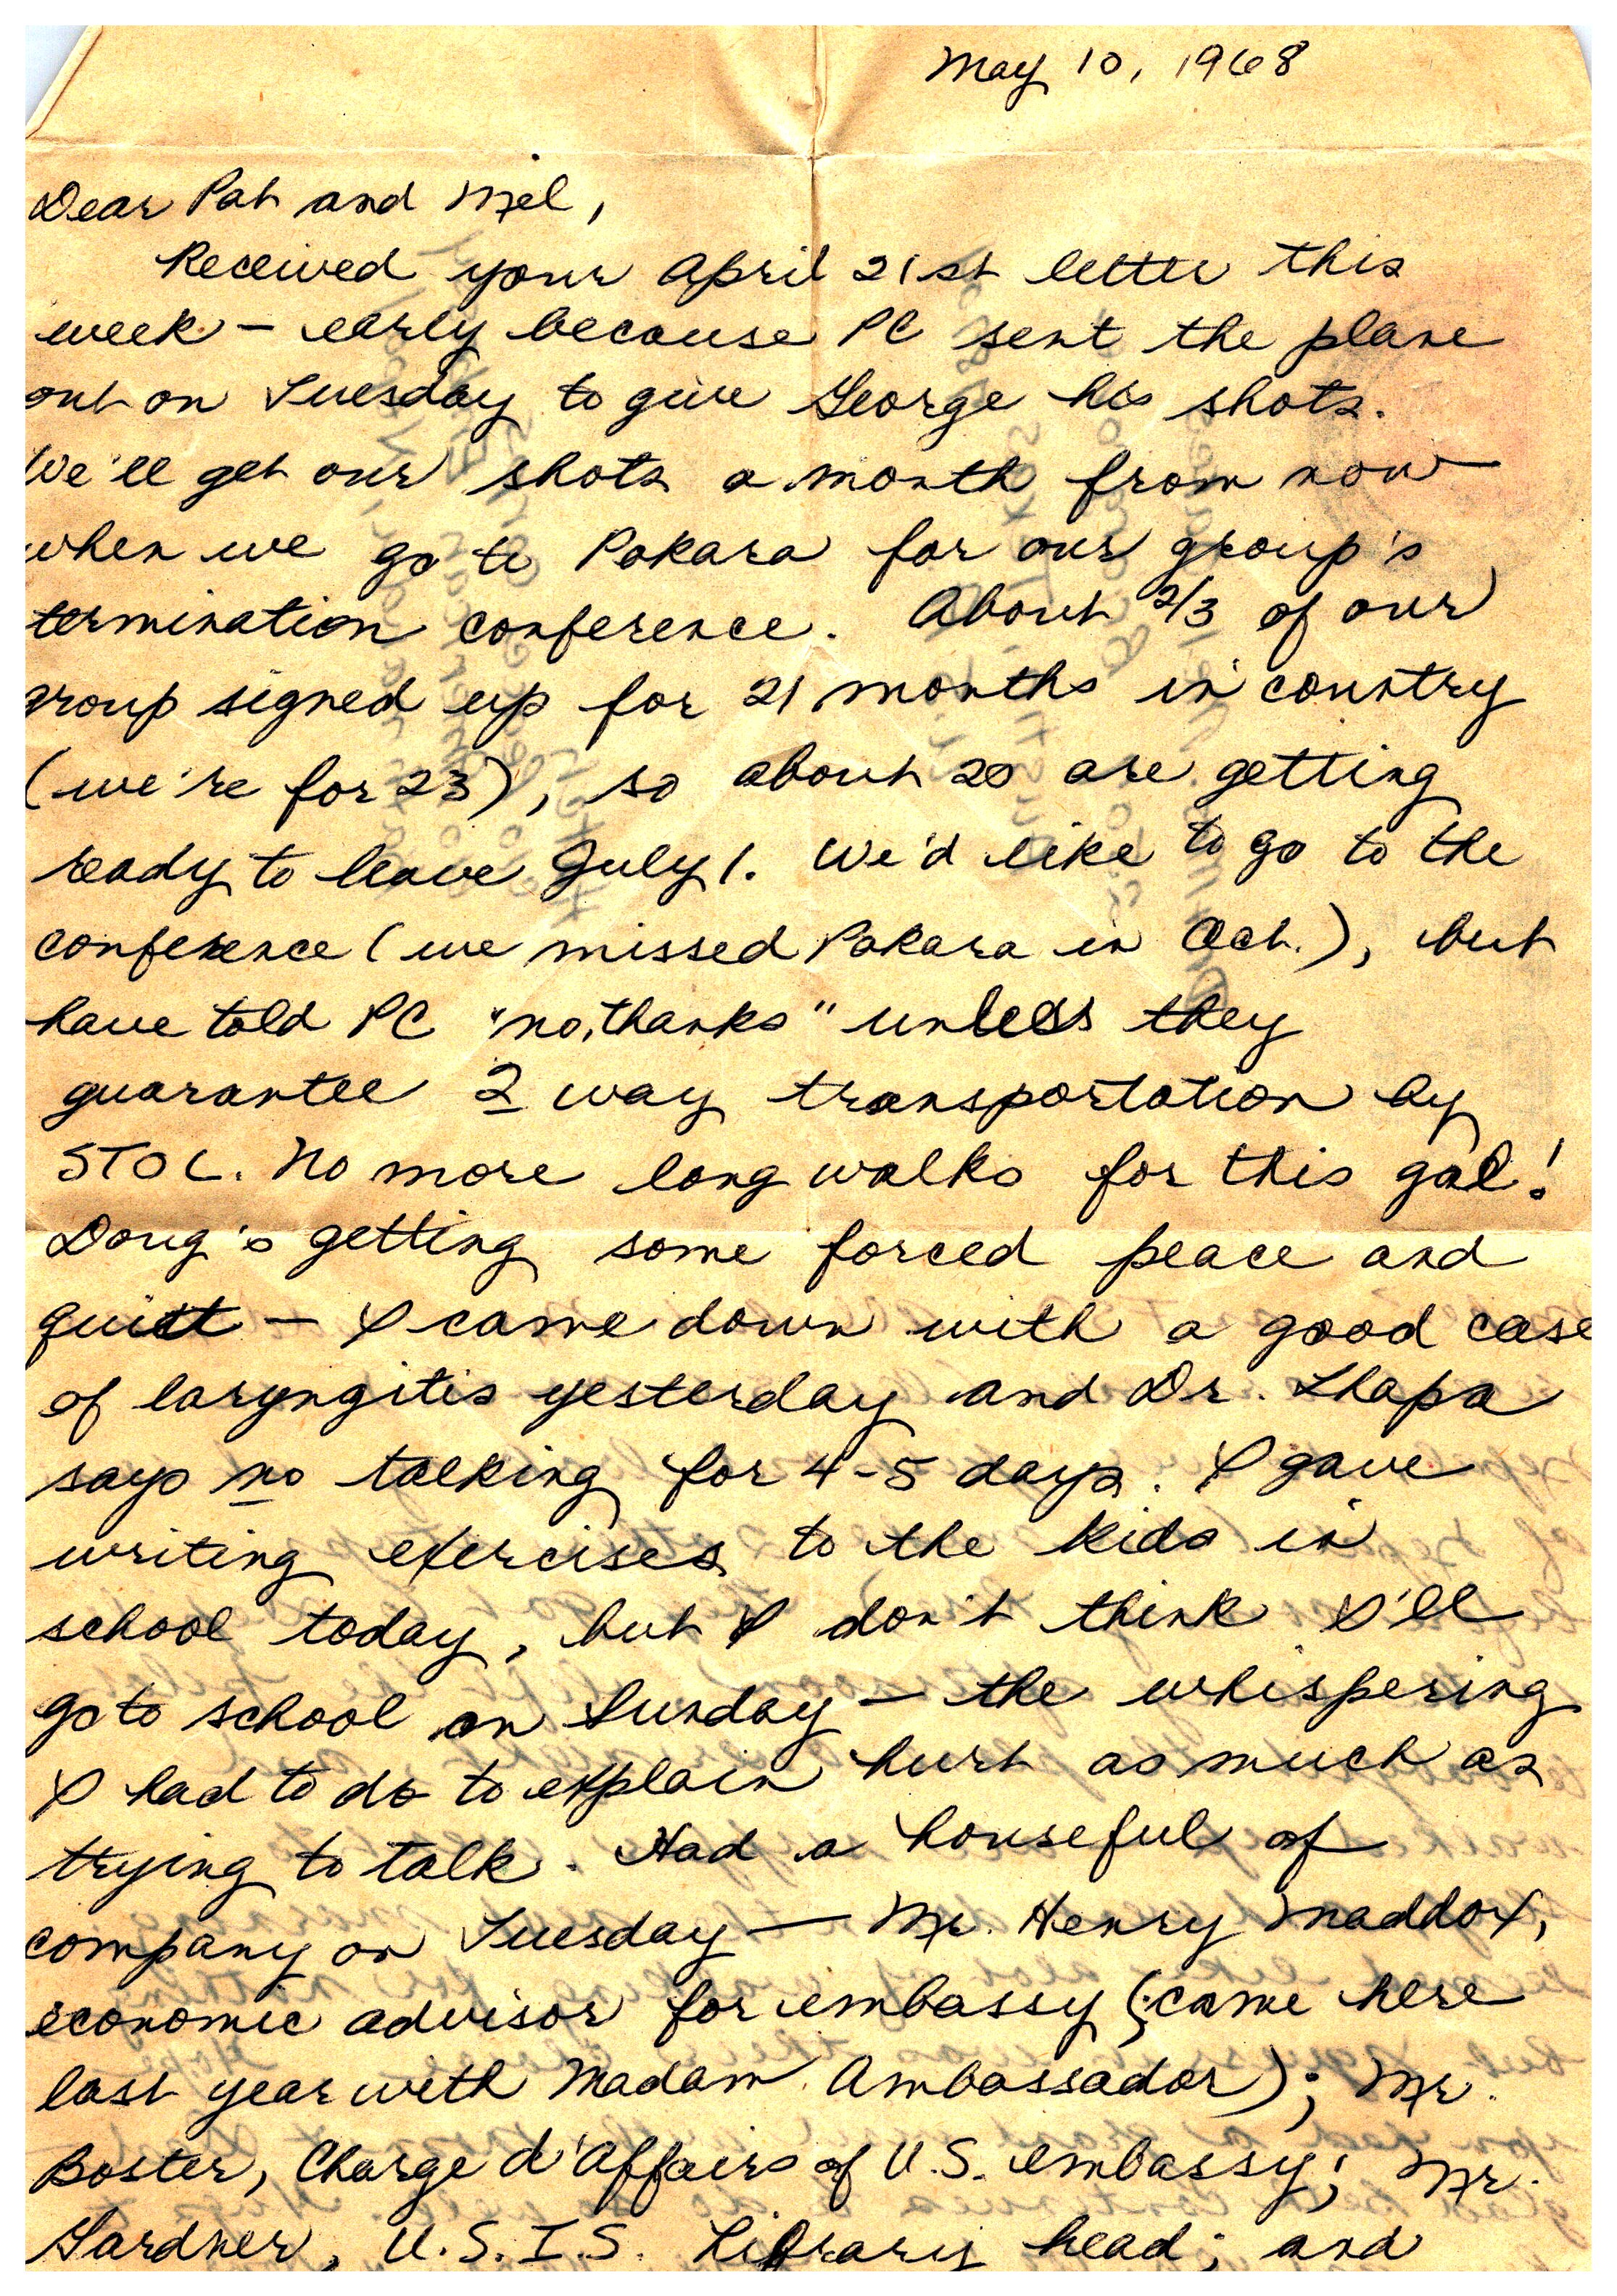 May 10, 1968
Dear Pat and Mel,
Received your April 21st letter this
week – early because PC sent the plane
out on Tuesday to give George his shots.
We'll get our shots a month from now
when we go to Pokara for our group's
termination conference. About 2/3 of our
group signed up for 21 months in country
(we're for 23), so about 20 are getting
ready to leave July 1. We'd like to go to the
conference (we missed Pokara in Oct.), but
have told PC "no, thanks" unless they
guarantee 2 way transportation by
STOL. No more long walks for this gal!
Doug's getting some forced peace and
quiet – I came down with a good case
of laryngitis yesterday and Dr. Thapa
says no talking for 4-5 days. I gave
writing exercises to the kids in
school today, but I don't think I'll
go to school on Sunday – the whispering
I had to do to explain hurt as much as
trying to talk. Had a houseful of
company on Tuesday – Mr. Henry Maddox,
economic advisor for embassy (came here
last year with Madam Ambassador); Mr.
Boster, Charge d'Affairs of U.S. embassy; Mr.
Gardner, U.S.I.S. Library head; and